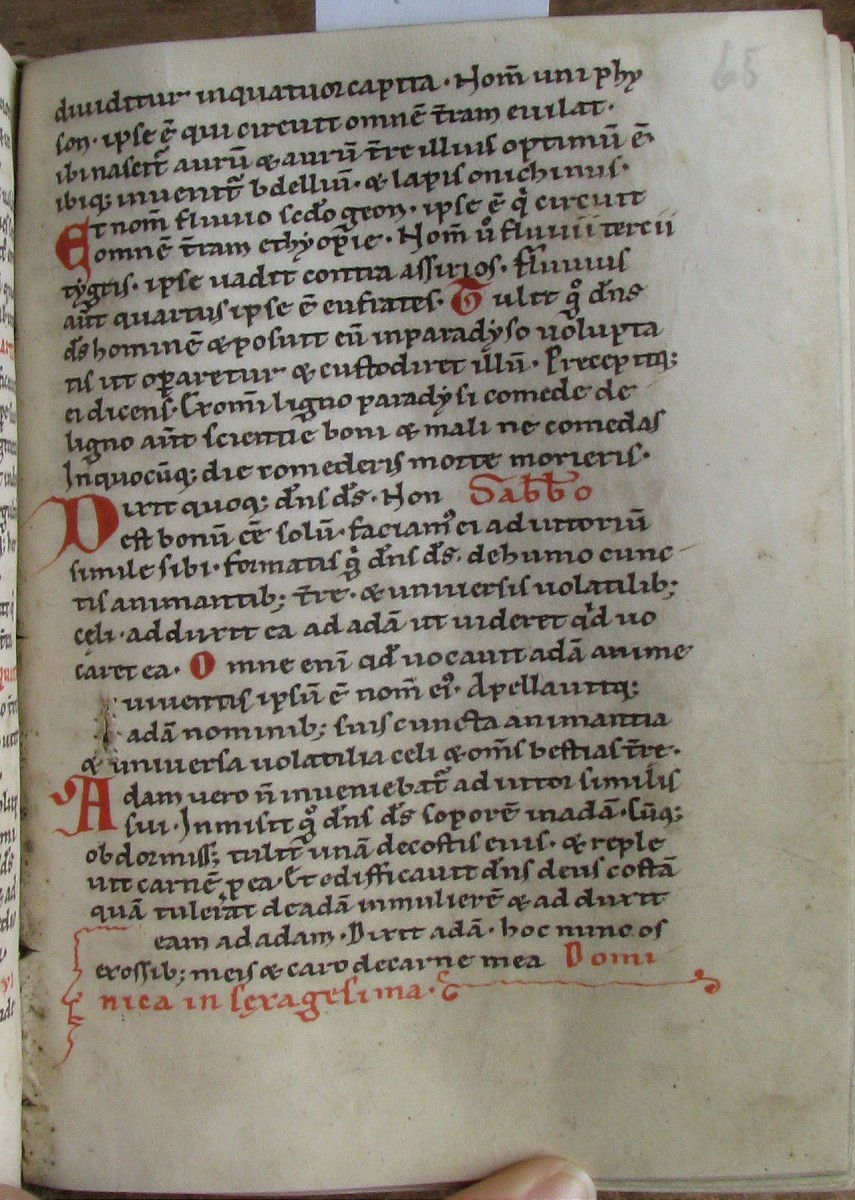 65
diuiditur inquatuor capita. Nom̄ uni phy
son. ipse ē qui circuit omnē t̄ram euilat.
ibi nascit᷑ aurū & aurū t̄re illius optimū ē.
ibiq; inuenit᷑ bdelliū. & lapis onichinus.
Et nom̄ fluuio sc̄do geon. ipse ē q̇ circuit
omnē t̄ram ethyopie. Nom̄ u̇ fluuii tercii
tygris. ipse uadit contra assirios. Fluuius
aūt quartus ipse ē eufrates. Tulit gͦ dn̄s
ds̄ hominē & posuit eū inparadyso uolupta
tis ut opararetur & custodiret illū. Precepitq;
ei dicens. Ex omni ligno paradysi comede de
ligno aūt scientie boni & mali ne comedas
Inquocūq; die comederis morte morieris.
Dixit quoq; dn̄s ds̄. Non Sabb̄o
est bonū ēē solū. faciamꝰ ei adiutoriū
simile sibi. formatis gͦ dn̄s ds̄. dehumo cunc
tis animantib; t̄re. & uniuersis uolatilib;
celi. adduxit ea ad adā ut uideret qd̄ uo
caret ea. Omne enī qd̄ uocauit adā anime
uiuentis ipsū ē nom̄ eiꝰ. Apellauitq;
adā nominib; suis cuncta animantia
& uniuersa uolatilia celi & om̄s bestias t̄re.
Adam uero n̄ inueniebat᷑ adiutor similis
sui. Inmisit gͦ dn̄s ds̄ soporē inadā. Cūq;
obdormiss; tulit unā decostis eius. & reple
uit carnē p ea. Et edifficauit dn̄s deus costā
quā tulerat deadā inmulierē & adduxit
eam ad adam. Dixit adā. hoc nunc os
exossib; meis & caro decarne mea Domi
nica in sexagesima.